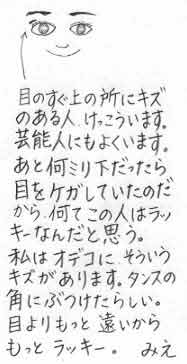 目のすぐ上の所にキズ
のある人、けっこういます。
芸能人にもよくいます。
あと何ミリ下だったら
目をケガしていたのだ
から、何てこの人はラッ
キーなんだと思う。
私はオデコに、そういう
キズがあります。タンスの
角にぶつけたらしい。
目よりもっと遠いから
もっとラッキー。 みえ